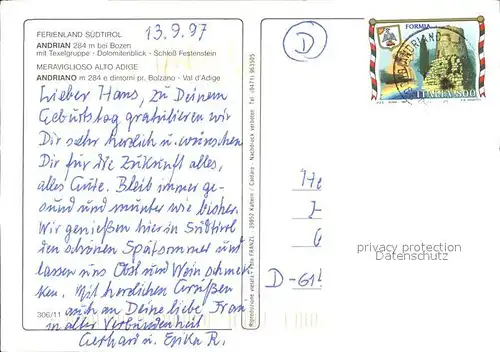 13.9.97
FERIENLAND SÜDTIROL
ANDRIAN 284 m bei Bozen
mit Texelgruppe - Dolomitenblick - Schloß Festenstein
MERAVIGLIOSO ALTO ADIGE
ANDRIANO m 284 e dintorni pr. Bolzano - Val d'Adige
Lieber Hans, zu Deinem
Geburtstag gratulieren wir
Dir sehr herzlich u. wünschen
Dir für die Zukunft alles,
alles Gute. Bleib immer ge-
sund und munter wie bisher.
Wir genießen hier in Südtirol
den schönen Spätsommer und
lassen uns Obst und Wein schmek-
ken. Mit herzlichen Grüßen
auch an Deine liebe Frau
in alter Verbundenheit
Gerhard u. Erika R.
306/11
Riproduzione vietata - Foto FRANZL - 39052 Kaltern / Caldaro - Nachdruck verboten - Tel. (0471) 963305
D
FORMIA
ITALIA 800
privacy protection
D-61